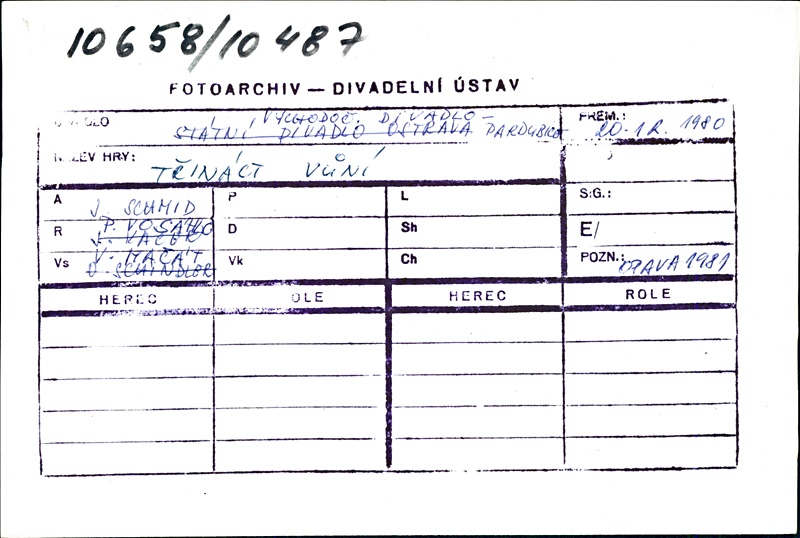 10658/10487
FOTOARCHIV — DIVADELNÍ ÚSTAV
VÝCHODOČ. DIVADLO –
STÁTNÍ DIVADLO OSTRAVA PARDUBICE
PREM.: 20. 12. 1980
NÁZEV HRY: TŘINÁCT VŮNÍ
A J. SCHMID P L S:G.:
R P. VOSÁHLO D Sh E/
J. VACEK
Vs V. MAČÁT Vk Ch POZN.: OPAVA 1981
O. SCHINDLER
HEREC OLE HEREC ROLE